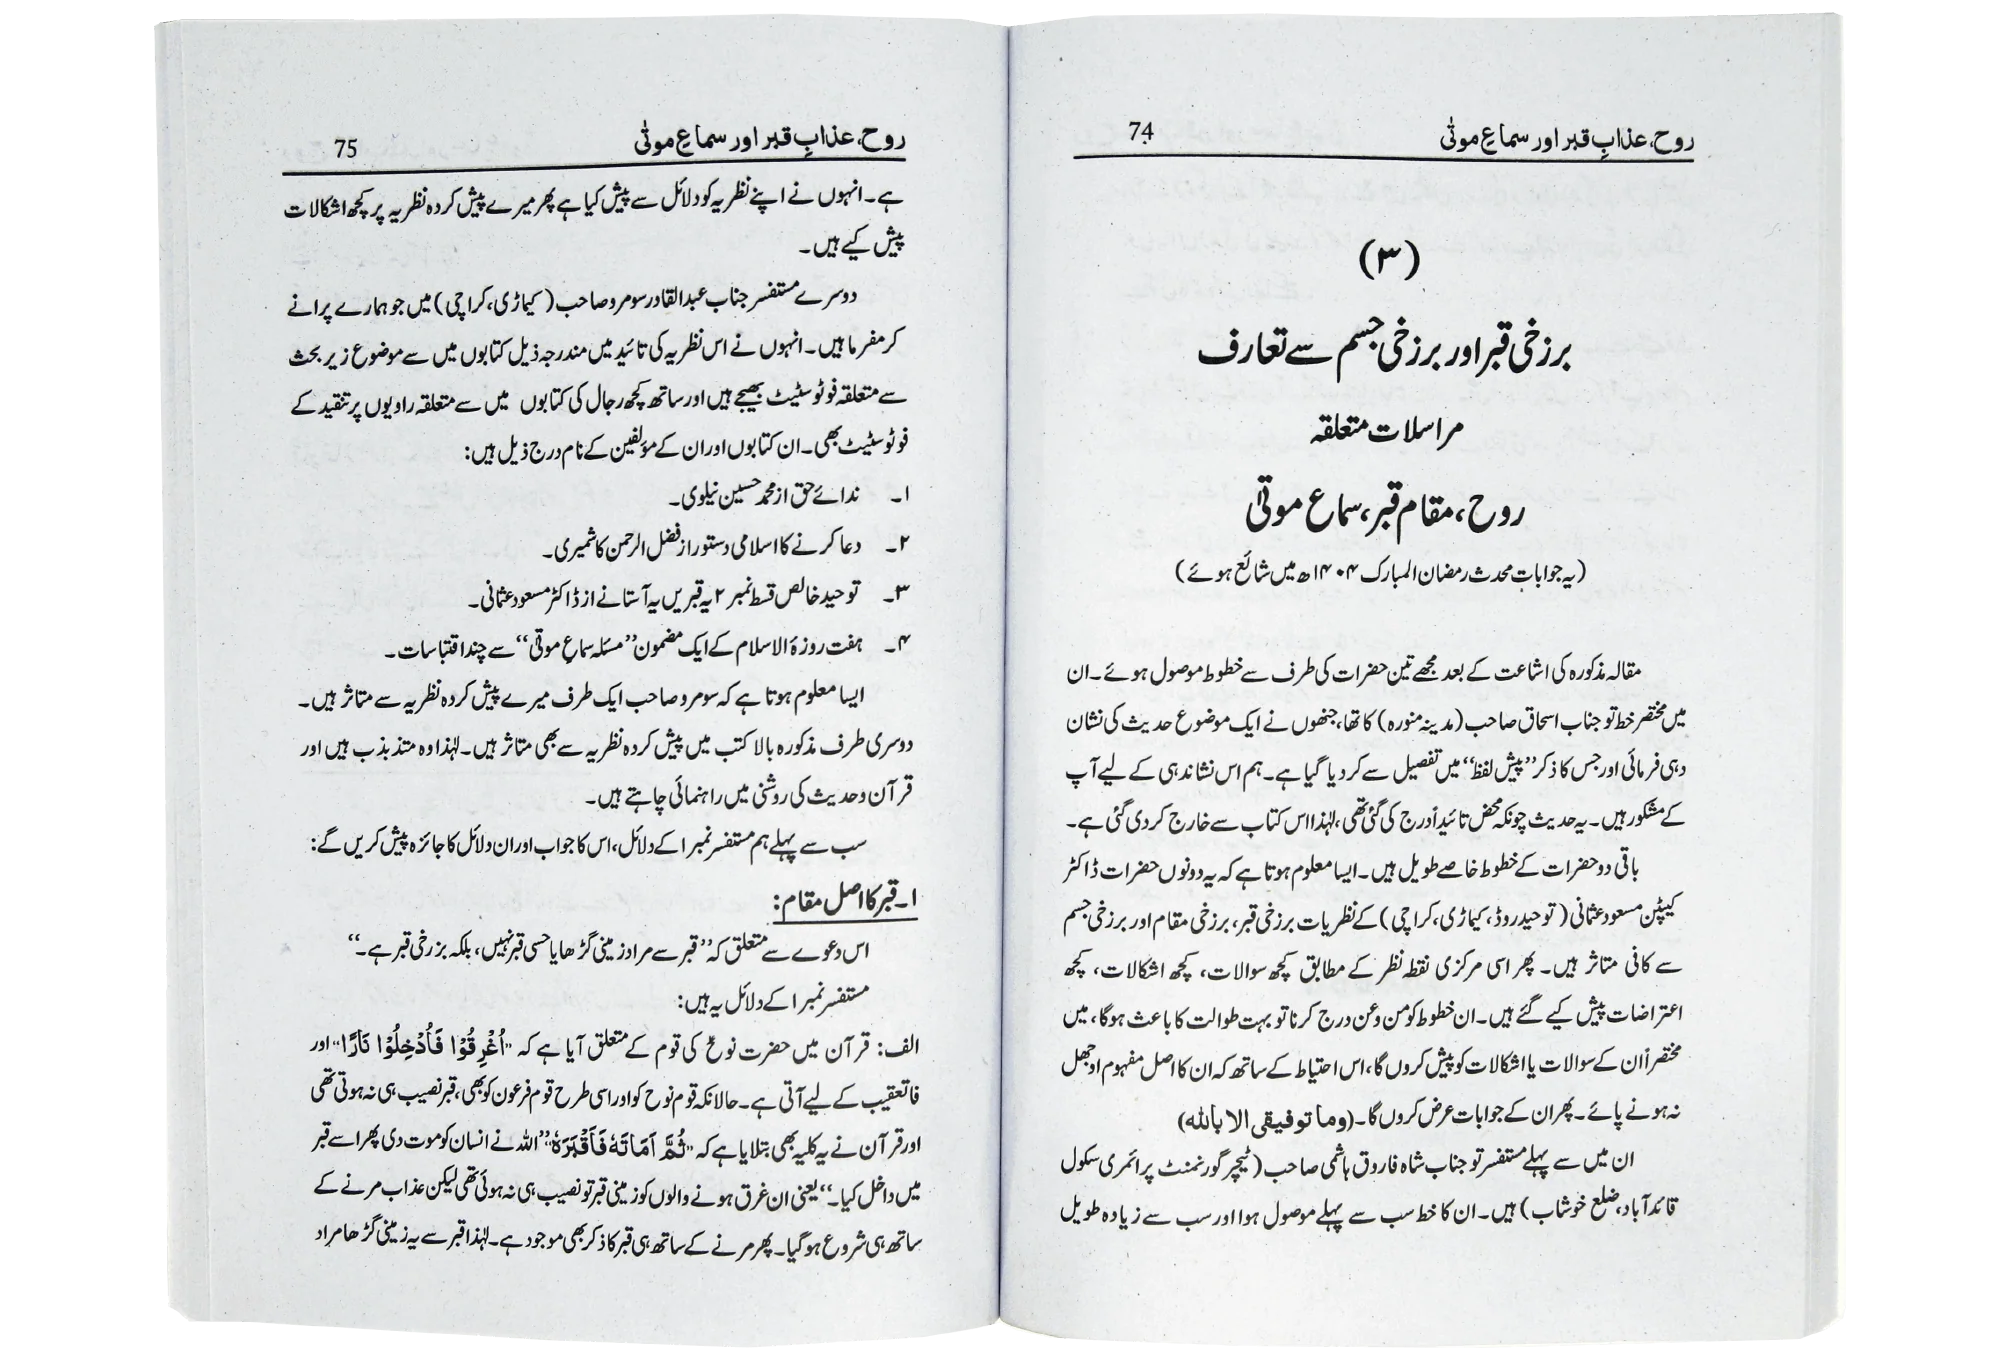 روح، عذابِ قبر اور سماعِ موتٰی 74
(۳)
برزخی قبر اور برزخی جسم سے تعارف
مراسلات متعلقہ
روح، مقام قبر، سماع موتیٰ
(یہ جوابات محدث رمضان المبارک ۱۴۰۴ھ میں شائع ہوئے)
مقالہ مذکورہ کی اشاعت کے بعد مجھے تین حضرات کی طرف سے خطوط موصول ہوئے۔ ان
میں مختصر خط تو جناب اسحاق صاحب (مدینہ منورہ) کا تھا، جنھوں نے ایک موضوع حدیث کی نشان
دہی فرمائی اور جس کا ذکر ”پیش لفظ“ میں تفصیل سے کر دیا گیا ہے۔ ہم اس نشاندہی کے لیے آپ
کے مشکور ہیں۔ یہ حدیث چونکہ محض تائیداً درج کی گئی تھی، لہٰذا اس کتاب سے خارج کر دی گئی ہے۔
باقی دو حضرات کے خطوط خاصے طویل ہیں۔ ایسا معلوم ہوتا ہے کہ یہ دونوں حضرات ڈاکٹر
کیپٹن مسعود عثمانی (توحید روڈ، کیماڑی، کراچی) کے نظریات برزخی قبر، برزخی مقام اور برزخی جسم
سے کافی متاثر ہیں۔ پھر اسی مرکزی نقطہ نظر کے مطابق کچھ سوالات، کچھ اشکالات، کچھ
اعتراضات پیش کیے گئے ہیں۔ ان خطوط کو من و عن درج کرنا تو بہت طوالت کا باعث ہوگا، میں
مختصراً ان کے سوالات یا اشکالات کو پیش کروں گا، اس احتیاط کے ساتھ کہ ان کا اصل مفہوم اوجھل
نہ ہونے پائے۔ پھر ان کے جوابات عرض کروں گا۔ (وما توفیقی الا باللہ)
ان میں سے پہلے مستفسر تو جناب شاہ فاروق ہاشمی صاحب (ٹیچر گورنمنٹ پرائمری سکول
قائد آباد، ضلع خوشاب) ہیں۔ ان کا خط سب سے پہلے موصول ہوا اور سب سے زیادہ طویل
روح، عذابِ قبر اور سماعِ موتٰی 75
ہے۔ انہوں نے اپنے نظریہ کو دلائل سے پیش کیا ہے پھر میرے پیش کردہ نظریہ پر کچھ اشکالات
پیش کیے ہیں۔
دوسرے مستفسر جناب عبدالقادر سومرو صاحب (کیماڑی، کراچی) میں جو ہمارے پرانے
کرمفرما ہیں۔ انہوں نے اس نظریہ کی تائید میں مندرجہ ذیل کتابوں میں سے موضوع زیر بحث
سے متعلقہ فوٹو سٹیٹ بھیجے ہیں اور ساتھ کچھ رجال کی کتابوں میں سے متعلقہ راویوں پر تنقید کے
فوٹو سٹیٹ بھی۔ ان کتابوں اور ان کے مؤلفین کے نام درج ذیل ہیں:
۱۔ ندائے حق از محمد حسین نیلوی۔
۲۔ دعا کرنے کا اسلامی دستور از فضل الرحمن کاشمیری۔
۳۔ توحید خالص قسط نمبر ۲ یہ قبریں یہ آستانے از ڈاکٹر مسعود عثمانی۔
۴۔ ہفت روزۂ الاسلام کے ایک مضمون ”مسئلہ سماعِ موتیٰ“ سے چند اقتباسات۔
ایسا معلوم ہوتا ہے کہ سومرو صاحب ایک طرف میرے پیش کردہ نظریہ سے متاثر ہیں۔
دوسری طرف مذکورہ بالا کتب میں پیش کردہ نظریہ سے بھی متاثر ہیں۔ لہٰذا وہ متذبذب ہیں اور
قرآن و حدیث کی روشنی میں راہنمائی چاہتے ہیں۔
سب سے پہلے ہم مستفسر نمبر ۱ کے دلائل، اس کا جواب اور ان دلائل کا جائزہ پیش کریں گے:
۱۔ قبر کا اصل مقام:
اس دعوے سے متعلق کہ ”قبر سے مراد زمینی گڑھا یا حسی قبر نہیں، بلکہ بزرخی قبر ہے۔“
مستفسر نمبر ۱ کے دلائل یہ ہیں:
الف: قرآن میں حضرت نوحؑ کی قوم کے متعلق آیا ہے کہ ”اُغْرِقُوْا فَاُدْخِلُوْا نَارًا“ اور
فا تعقیب کے لیے آتی ہے۔ حالانکہ قوم نوح کو اور اسی طرح قوم فرعون کو بھی، قبر نصیب ہی نہ ہوتی تھی
اور قرآن نے یہ کلیہ بھی بتلایا ہے کہ ”ثُمَّ اَمَاتَهٗ فَاَقْبَرَهٗ“ ”اللہ نے انسان کو موت دی پھر اسے قبر
میں داخل کیا۔“ یعنی ان غرق ہونے والوں کو زمینی قبر تو نصیب ہی نہ ہوئی تھی لیکن عذاب مرنے کے
ساتھ ہی شروع ہو گیا۔ پھر مرنے کے ساتھ ہی قبر کا ذکر بھی موجود ہے۔ لہٰذا قبر سے یہ زمینی گڑھا مراد